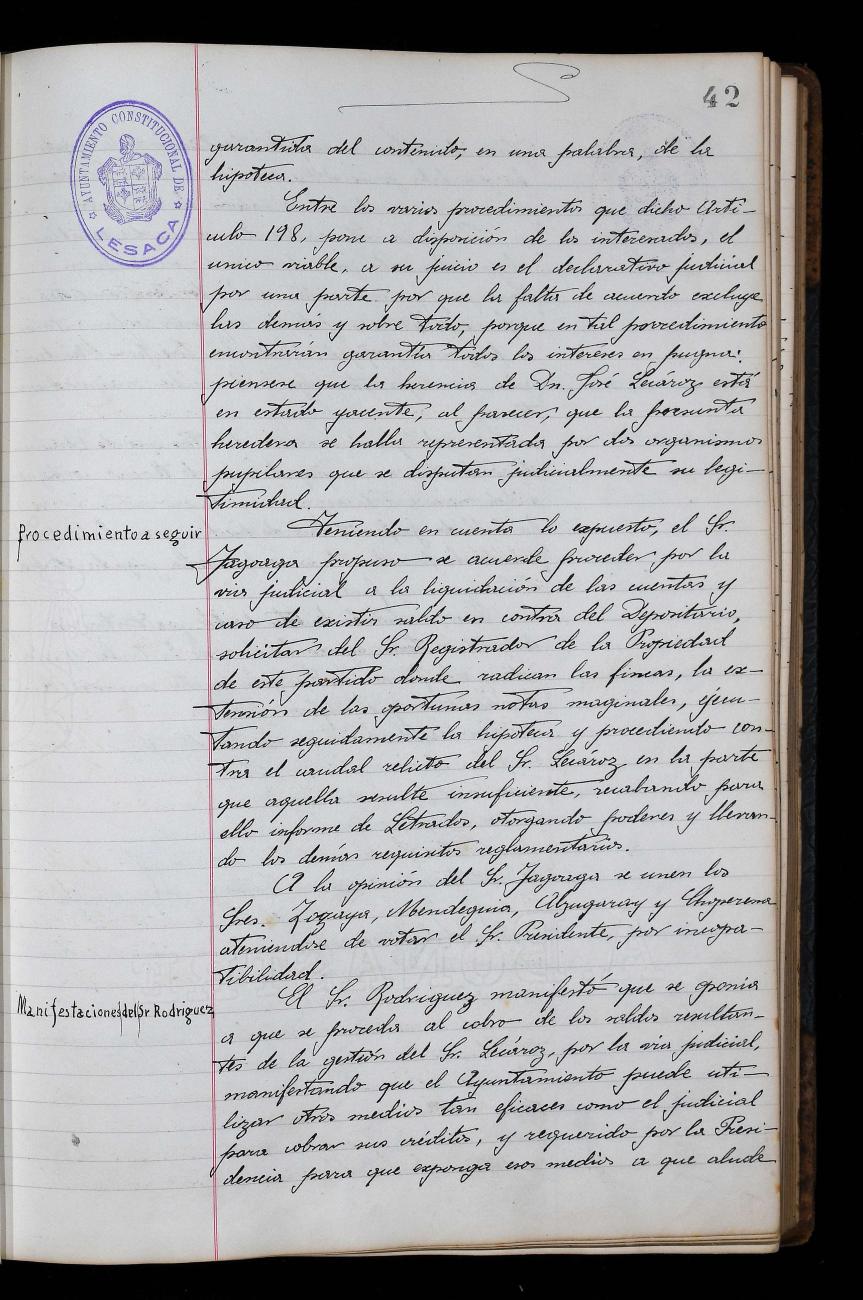 42
AYUNTAMIENTO CONSTITUCIONAL DE
LESACA
garantida del contenido, en una palabra, de la
hipoteca.
Entre los varios procedimientos que dicho Artí-
culo 198, pone a disposición de los interesados, el
unico viable, a su juicio es el declarativo judicial
por una parte por que la falta de acuerdo excluye
las demás y sobre todo, porque en tal procedimiento
encontrarían garantía todos los intereses en pugna:
piensese que la herencia de Dn. José Lecároz está
en estado yacente, al parecer, que la presunta
heredera se halla representada por dos organismos
pupilares que se disputan judicialmente su legi-
timidad.
Procedimiento a seguir
Teniendo en cuenta lo expuesto, el Sr.
Jagoaga propuso se acuerde proceder por la
via judicial a la liquidación de las cuentas y
caso de existir saldo en contra del Depositario,
solicitar del Sr. Registrador de la Propiedad
de este partido donde radican las fincas, la ex-
tensión de las oportunas notas maginales, ejecu-
tando seguidamente la hipoteca y procediendo con-
tra el caudal relicto del Sr. Lecároz en la parte
que aquella resulte insuficiente, recabando para
ello informe de Letrados, otorgando poderes y llevan-
do los demás requisitos reglamentarios.
A la opinión del Sr. Jagoaga se unen los
Sres. Zozaya, Mendeguia, Alzugaray y Choperena
ateniendose de votar el Sr. Presidente, por incopa-
tibilidad.
Manifestaciones del Sr Rodriguez
El Sr. Rodriguez manifestó que se oponia
a que se proceda al cobro de los saldos resultan-
tes de la gestión del Sr. Lecároz, por la via judicial,
manifestando que el Ayuntamiento puede uti-
lizar otros medios tan eficaces como el judicial
para cobrar sus créditos, y requerido por la Presi-
dencia para que exponga esos medios a que alude